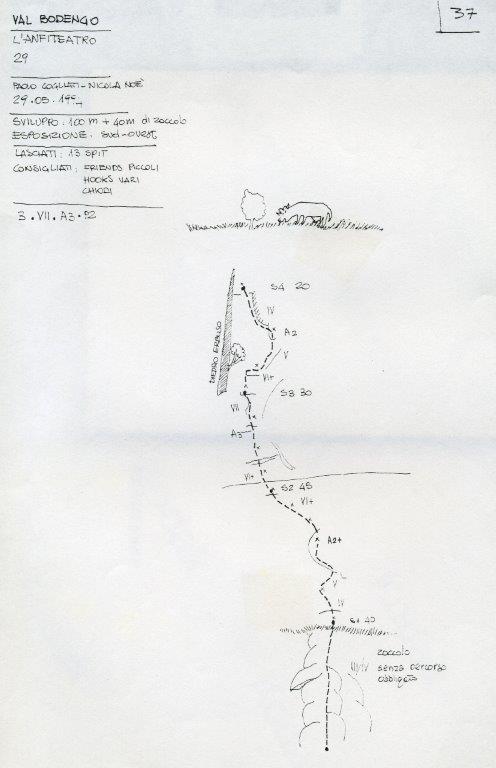 37
VAL BODENGO
L'ANFITEATRO
29
PAOLO COGLIATI - NICOLA NOÈ
29.05.199
SVILUPPO: 100 m + 40 m di zoccolo
ESPOSIZIONE: sud-ovest
LASCIATI: 13 SPIT
CONSIGLIATI: FRIENDS PICCOLI
HOOKS VARI
CHIODI
3.VII.A3.R2
S4 20
IV
A2
V
DIEDRO ERBOSO
VI+
S3 30
VII
A3
VI+
S2 45
VI+
A2+
V
IV
S1 40
zoccolo
III/IV senza percorso
obbligato